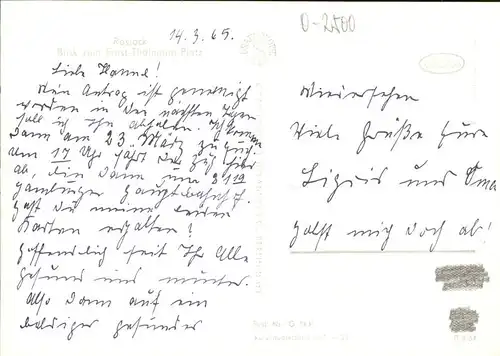 14.3.69.
0-2500
Rostock
Blick zum Ernst-Thälmann-Platz
Liebe Hanne!
Mein Antrag ist genemigt
worden in den nächsten Tagen
soll ich ihn abholen. Ich komme
dann am 23. März zu Euch.
Um 17 Uhr fährt der Zug hier
ab, bin dann zum 21 19
Hamburger Hauptbahnhof.
Hast du meine beiden
Karten erhalten?
Hoffendlich seit Ihr Alle
gesund und munter.
Also dann auf ein
baldiges gesundes
Wiedersehen
Viele Grüße Eure
und Oma
Holst mich doch ab!